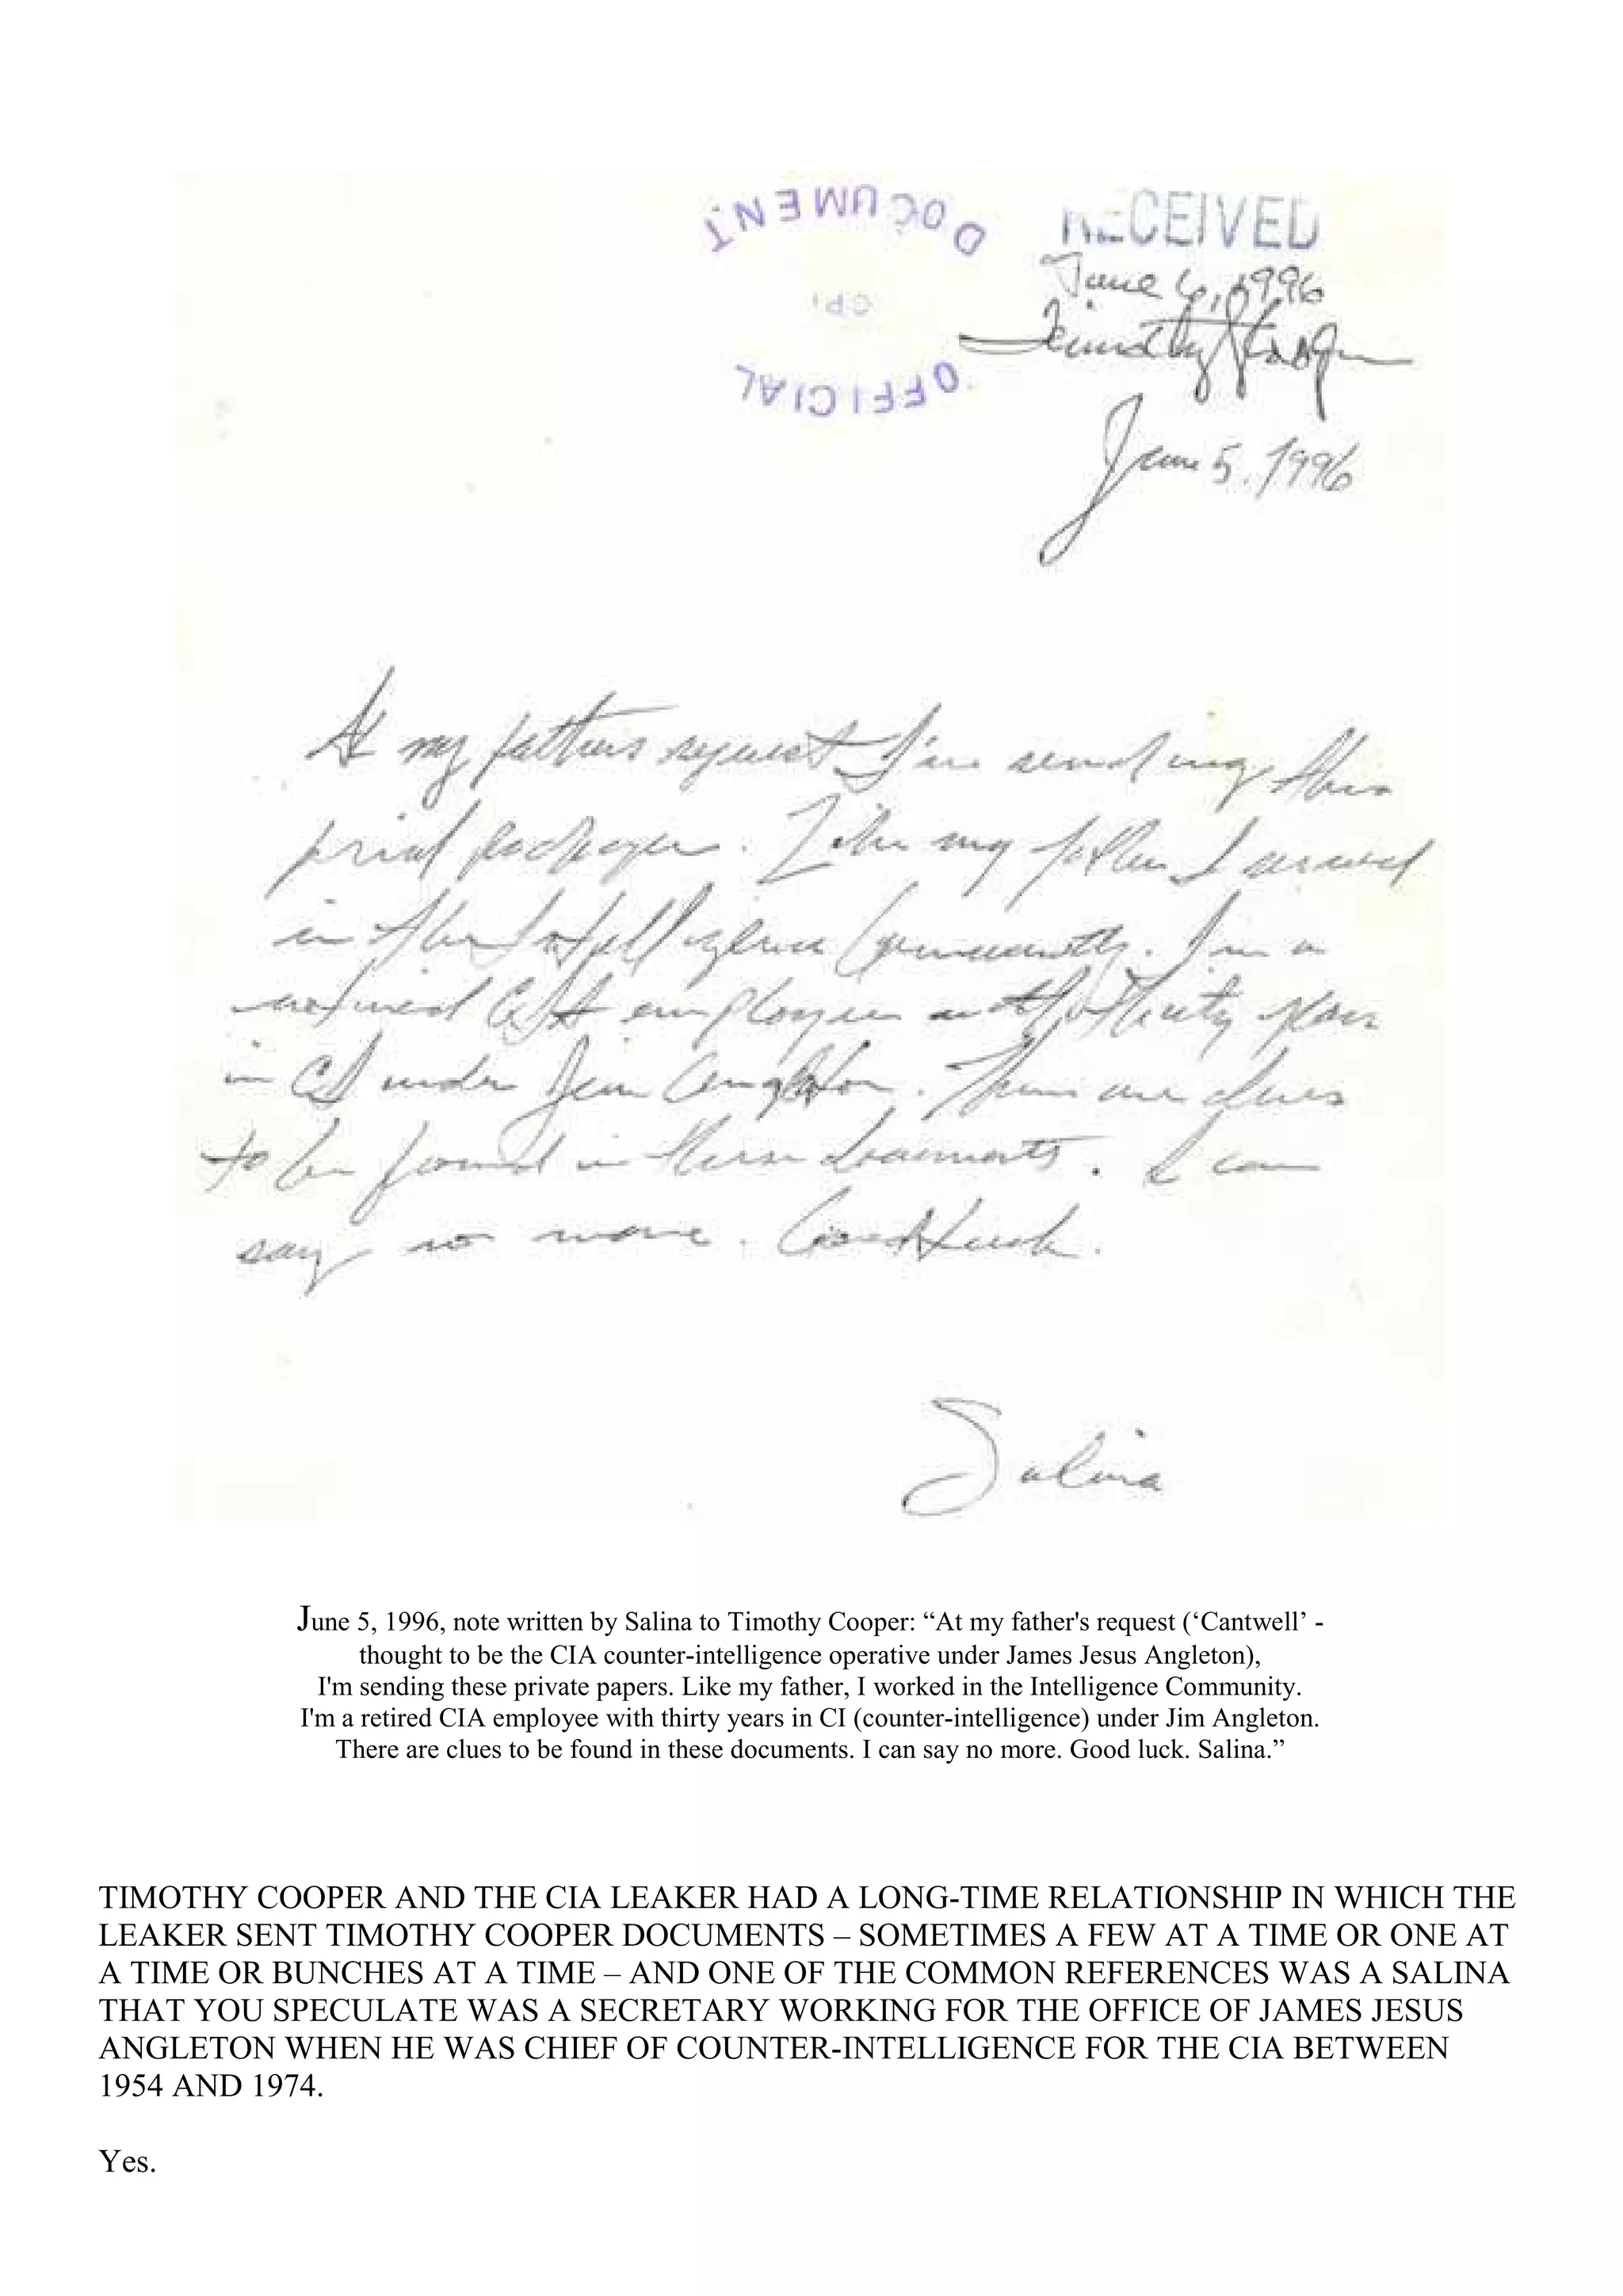 DOCUMENT
RECEIVED
June 6, 1996
CPI
Timothy Cooper
OFFICIAL
June 5, 1996
At my fathers request I'm sending this
package. Like my father I served
in the Intelligence Community. I'm a
retired CIA employee with thirty years
in CI under Jim Angleton. There are clues
to be found in these documents. I can
say no more. Good Luck.
Salina
June 5, 1996, note written by Salina to Timothy Cooper: “At my father's request (‘Cantwell’ -
thought to be the CIA counter-intelligence operative under James Jesus Angleton),
I'm sending these private papers. Like my father, I worked in the Intelligence Community.
I'm a retired CIA employee with thirty years in CI (counter-intelligence) under Jim Angleton.
There are clues to be found in these documents. I can say no more. Good luck. Salina.”
TIMOTHY COOPER AND THE CIA LEAKER HAD A LONG-TIME RELATIONSHIP IN WHICH THE
LEAKER SENT TIMOTHY COOPER DOCUMENTS – SOMETIMES A FEW AT A TIME OR ONE AT
A TIME OR BUNCHES AT A TIME – AND ONE OF THE COMMON REFERENCES WAS A SALINA
THAT YOU SPECULATE WAS A SECRETARY WORKING FOR THE OFFICE OF JAMES JESUS
ANGLETON WHEN HE WAS CHIEF OF COUNTER-INTELLIGENCE FOR THE CIA BETWEEN
1954 AND 1974.
Yes.